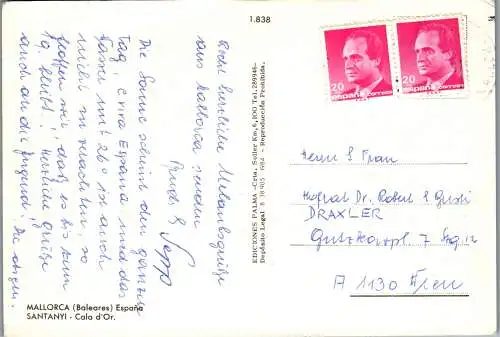 1.838
20
españa correos
20
españa correos
Recht herzliche Urlaubsgrüße
aus Mallorca senden
Sepp
Die Sonne scheint den ganzen
Tag, Eviva España und das
Wasser mit 26° ist auch
nicht zu verachten, so
hoffen wir, daß es bis zum
bleibt! Herzliche Grüße
auch an die Jugend! Die obigen.
MALLORCA (Baleares) España
SANTANYI - Cala d'Or.
EDICIONES PALMA -Crta. Soller, Km, 6,100 Tel, 289946-
Depósito Legal B 38.905 - 1984 - Reproducción Prohibida.
Herrn & Frau
Hofrat Dr. Robert & Gusti
DRAXLER
7
A 1130 Wien